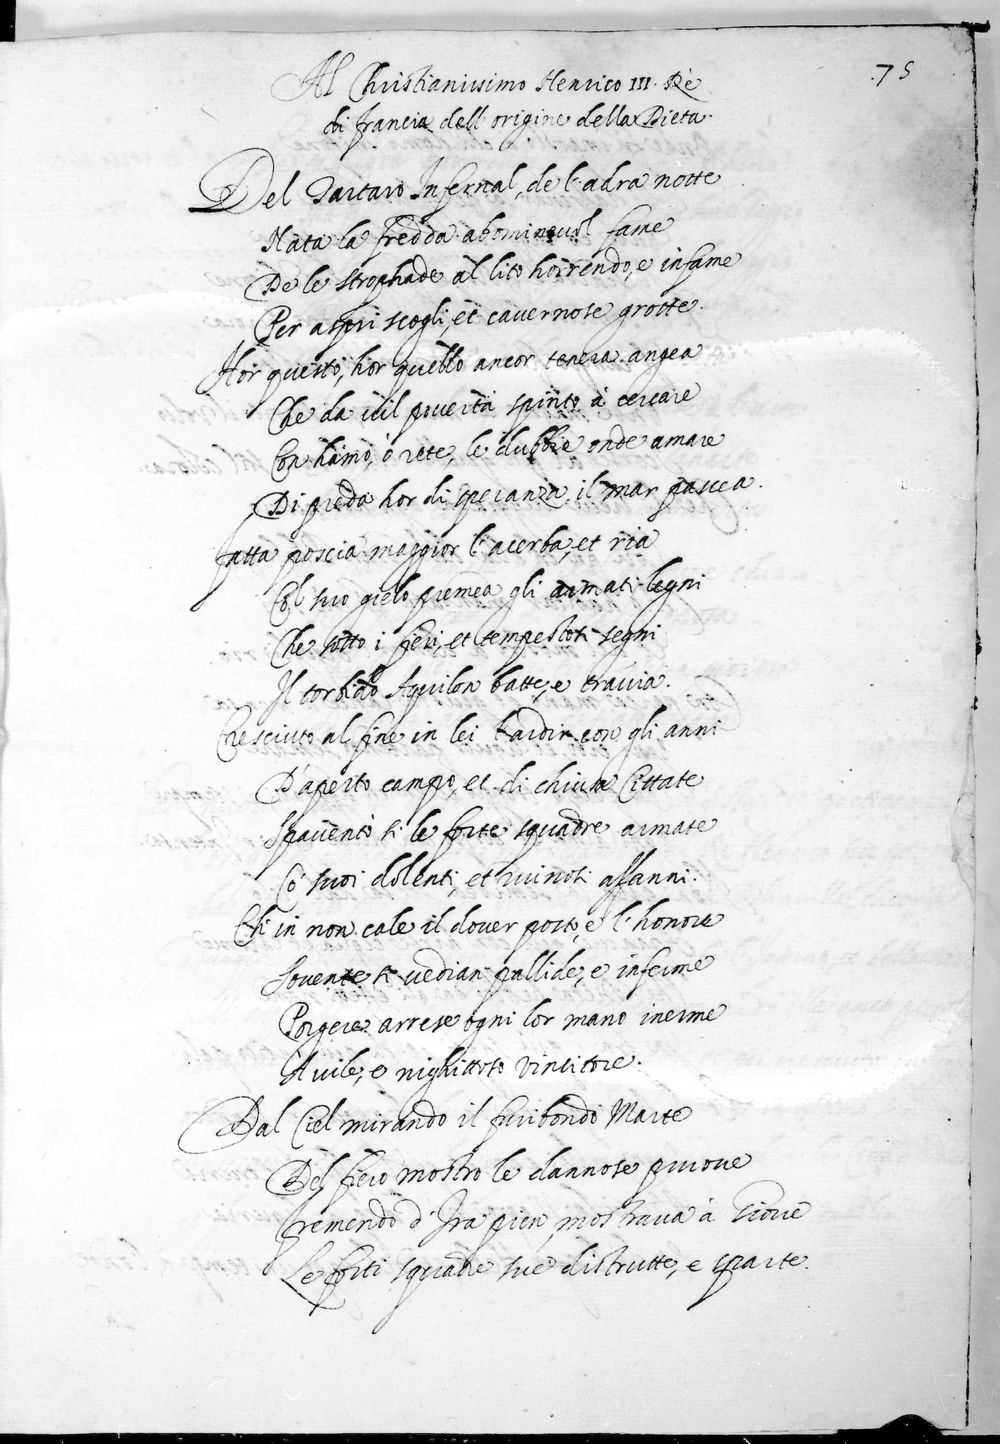 75
Al Christianissimo Henrico III. Rè
di francia dell'origine della Dieta.
Del Tartaro Infernal, de l'adra notte
Nata la fredda abominevol fame
De le strophade al lito horrendo, e infame
Per aspri scogli, et cavernose grotte.
Hor questo, hor quello ancor tenera angea
Che da vil povertà spinto à cercare
Con hamo, ò rete, le dubbie onde amare
Di preda hor di speranza il mar pascea.
fatta poscia maggior l'acerba, et ria
Col suo gielo premea gli armati legni
Che sotto i feri, et tempestosi segni
Il torbido Aquilon batte, e travia.
Cresciuto al fine in lei l'ardir con gli anni
D'aperto campo, et di chiusa Cittate
Spaventò si le forte squadre armate
Co' suoi dolenti, et ruinosi affanni.
Ch'in non cale il dover posto, e l'honore
Sovente si vedian pallide, e inferme
Porgere arrese ogni lor mano inerme
A vile, e nighittoso vincitore.
Dal Ciel mirando il furibondo Marte
Del fiero mostro le dannose pruove
fremendo d'Ira pien mostrava à Giove
Le forti squadre sue distrutte, e sparte.